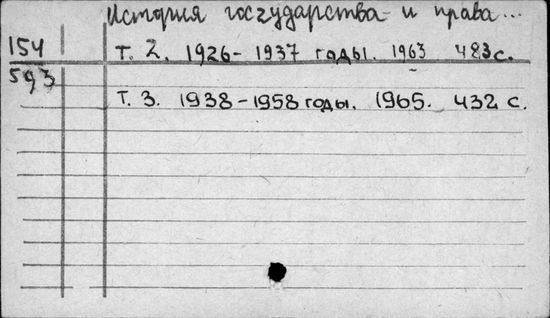 История государства и права...
154 Т. 2. 1926-1937 годы. 1963 483 с.
593
Т. 3. 1938-1958 годы. 1965. 432 с.